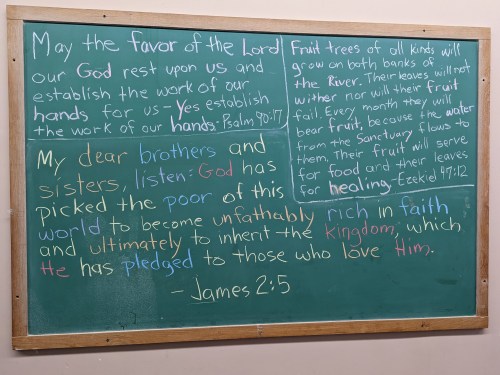 May the favor of the Lord
our God rest upon us and
establish the work of our
hands for us - Yes establish
the work of our hands. - Psalm 90:17
Fruit trees of all kinds will
grow on both banks of
the River. Their leaves will not
wither nor will their fruit
fail. Every month they will
bear fruit, because the water
from the Sanctuary flows to
them. Their fruit will serve
for food and their leaves
for healing. - Ezekiel 47:12
My dear brothers and
sisters, listen: God has
picked the poor of this
world to become unfathably rich in faith
and ultimately to inherit the kingdom, which
He has pledged to those who love Him.
- James 2:5